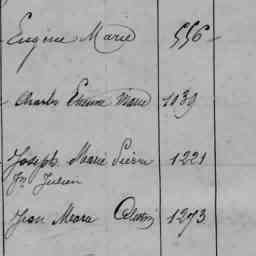 Eugène Marie 556
Charles Etienne Marie 1039
Joseph Marie Pierre 1221
Fs Julien
Jean Marie 1273